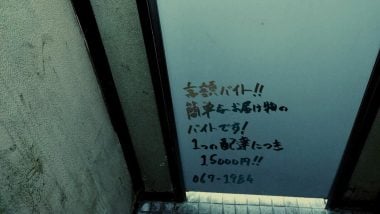 高額バイト!!
簡単なお届け物の
バイトです!
1つの配達につき
15000円!!
067-1984